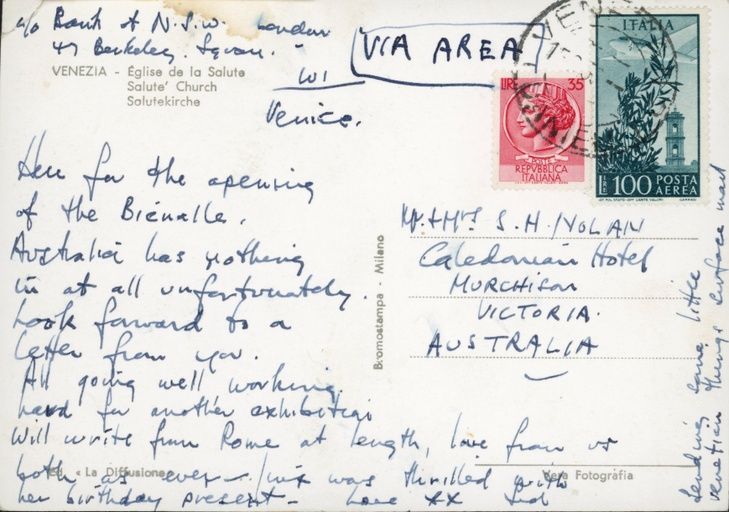 c/o Bank of N.S.W. London
47 Berkeley Square.
W1
VIA AREA
VENEZIA - Église de la Salute
Salute' Church
Salutekirche
Venice.
Here for the opening
of the Biénalle.
Australia has nothing
in at all unfortunately.
Look forward to a
letter from you.
All going well working
hard for another exhibition
Will write from Rome at length, love from us
both as ever - was thrilled with
her birthday present - Love xx Sid
Ed. « La Diffusione»
Vera Fotografia
Bromostampa - Milano
Mr. & Mrs S. H. NOLAN
Caledonian Hotel
MURCHISON
VICTORIA.
AUSTRALIA
Sending some little
venetian things surface mail
VENEZIA
LIRE 35
POSTE
REPVBBLICA
ITALIANA
ITALIA
LIRE 100 POSTA
AEREA